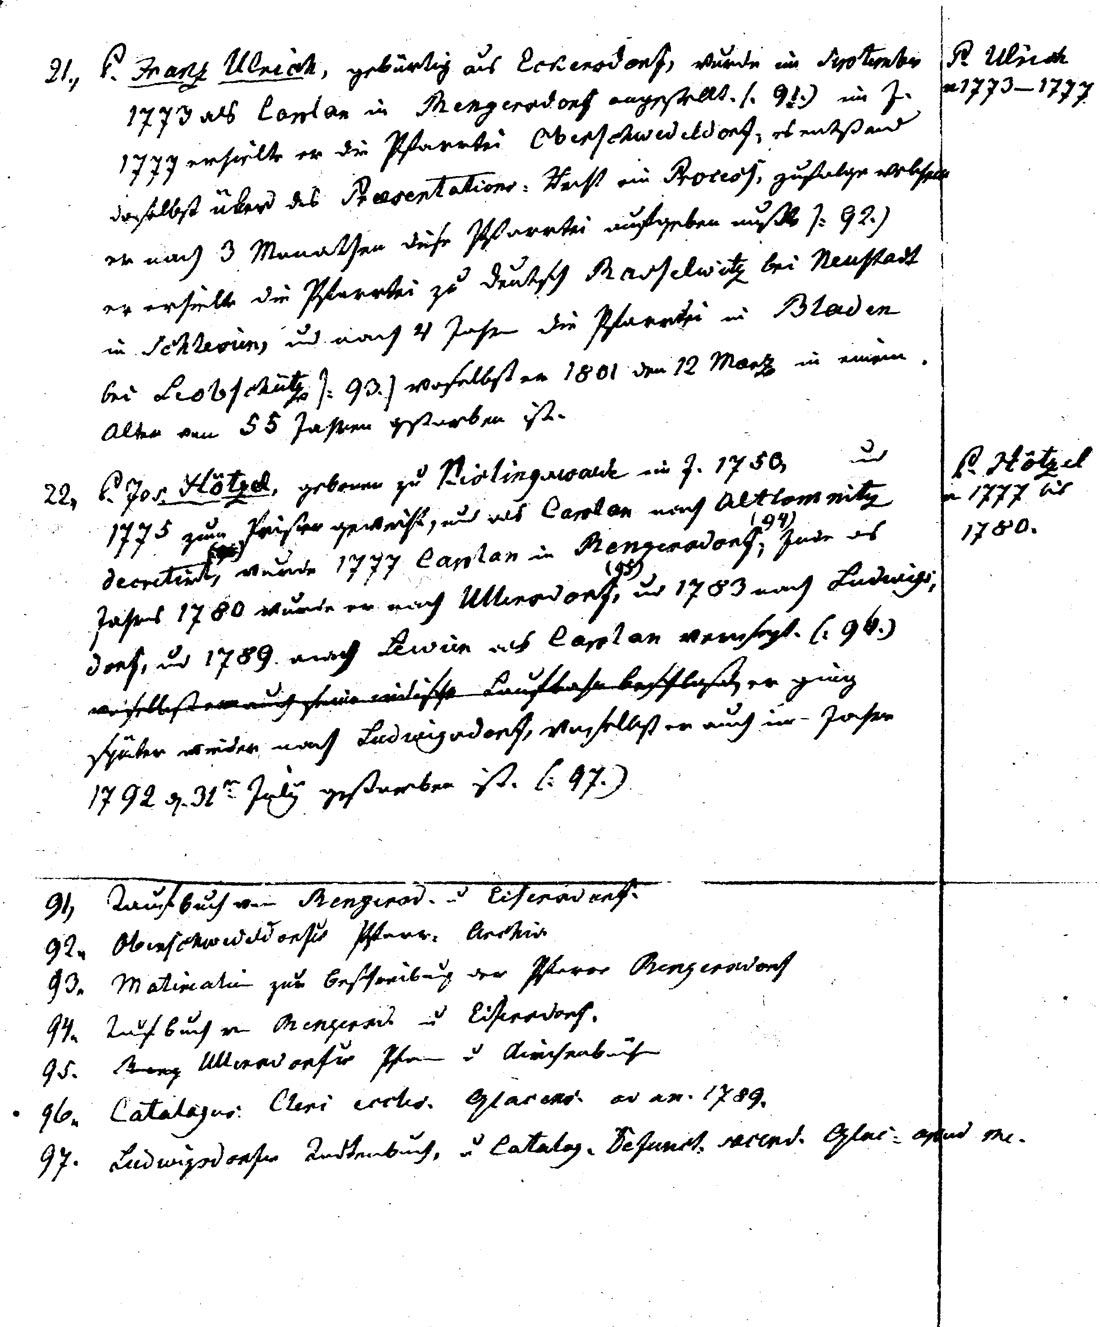 21., P. Franz Ulrich, gebürtig aus Eckersdorf, wurde im September
1773 als Caplan in Rengersdorf angestellt. (: 91.) im J.
1777 erhielte er die Pfarrtei Oberschwedeldorf, es entstand
daselbst über das Praesentations-Recht ein Process, zufolge welchem
er nach 3 Monathen diese Pfarrtei aufgeben mußte (: 92.)
er erhielte die Pfarrtei zu Deutsch Rasselwitz bei Neustadt
in Schlesien, und nach 4 Jahren die Pfarrtei in Bladen
bei Leobschütz (: 93.) woselbst er 1801 den 12 Maerz in einem
Alter von 55 Jahren gestorben ist.
P. Ulrich
v 1773–1777
22, P. Jos. Hötzel, geboren zu Kislingswalde im J. 1750, und
1775 zum Priester geweiht, und als Caplan nach Altlomnitz
decretirt, wurde 1777 Caplan in Rengersdorf, (94) Ende des
Jahres 1780 wurde er nach Ullersdorf, (95) und 1783 nach Ludwigs,
dorf, und 1789 nach Lewin als Caplan versetzt. (: 96.)
woselbst er auch seine irdische Laufbahn beschloß, er ging
später wieder nach Ludwigsdorf, woselbst er auch im Jahre
1792 d. 31ten July gestorben ist. (: 97.)
P. Hötzel
v 1777 bis
1780.
91, Taufbuch von Rengersd. u Eisersdorf.
92. Oberschwedeldorfer Pfarr. Archiv
93. Materialien zur Beschreibung der Pfarre Rengersdorf
94. Taufbuch v Rengersd. u Eisersdorf.
95. Ullersdorfer Pfarr u Kirchenbücher
96. Catalogus Cleri eccles. Glacens. ad an. 1789.
97. Ludwigsdorfer Todtenbuch, u Catalog. Defunct. sacerd. Glac. apud me.